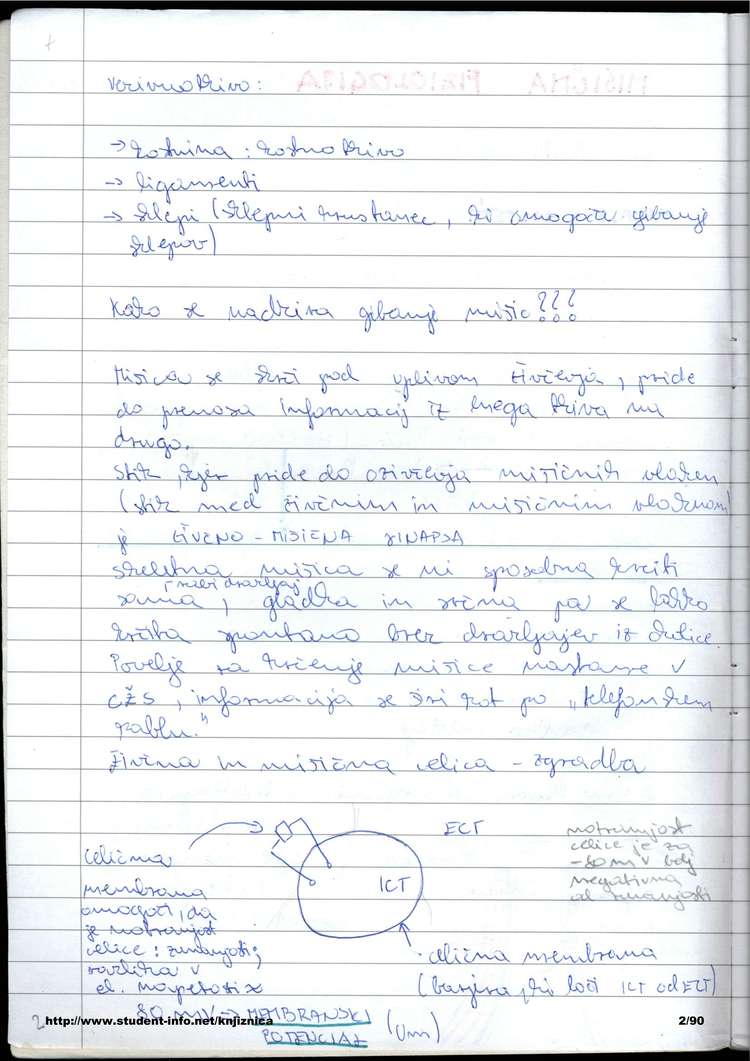 vezivno tkivo:
→ kostnina: kostno tkivo
→ ligamenti
→ sklepi (sklepni hrustanec, ki omogoča gibanje
sklepov)
Kako se nadzira gibanje mišic???
Mišica se skrči pod vplivom živčevja, pride
do prenosa informacij iz enega tkiva na
drugo.
Stik, kjer pride do oživčevja mišičnih vlaken
(stik med živčnim in mišičnim vlaknom)
je ŽIVČNO - MIŠIČNA SINAPSA
skeletna mišica se ni sposobna krčiti
sama, gladka in srčna pa se lahko
krčita spontano brez dražljajev iz
Povelje za krčenje mišice nastane v
CŽS, informacija se širi kot po "telefonskem
kablu."
Živčna in mišična celica - zgradba
ECT
notranjost
celice je za
-80 mV bolj
negativna
od zunanjosti
ICT
celična
membrana
omogoči, da
je notranjost
celice : zunanjosti;
razlika v
el. napetosti x
80 mV → MEMBRANSKI
POTENCIAL (Um)
celična membrana
(bariera, ki loči ICT od ECT)
2
http://www.student-info.net/knjiznica
2/90